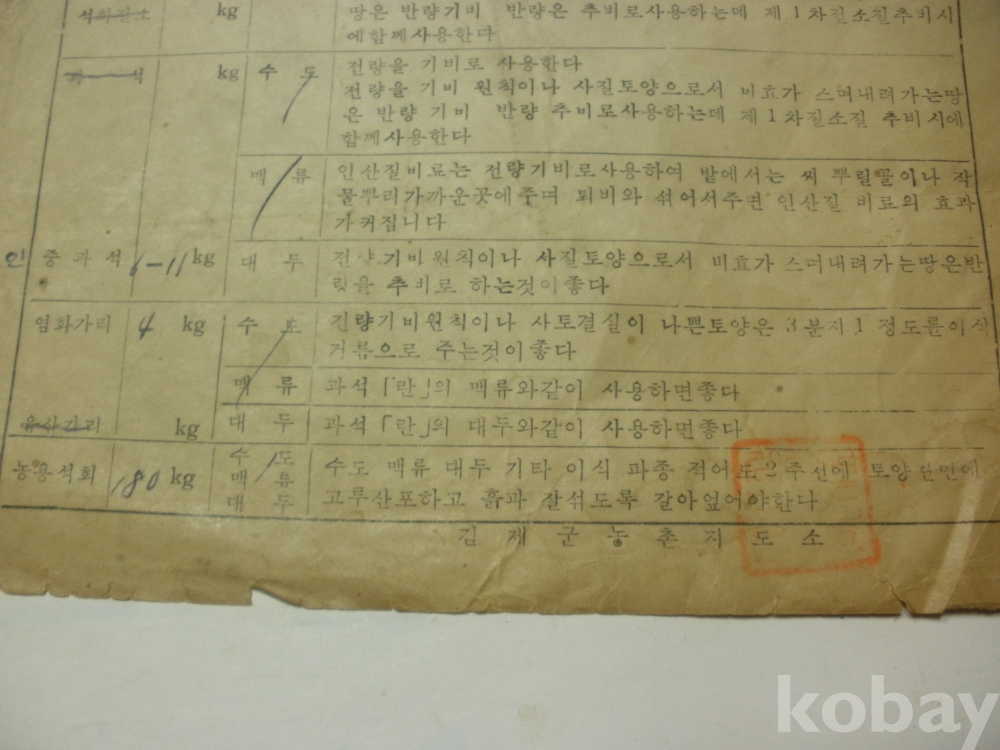 석회질소 kg 땅은 반량기비 반량은 추비로사용하는데 제1차질소질추비시
에함께사용한다
과 석 kg 수 도 전량을 기비로 사용한다
전량을 기비 원칙이나 사질토양으로서 비효가 스며내려가는땅
은 반량 기비 반량 추비로사용하는데 제1차질소질 추비시에
함께사용한다
맥 류 인산질비료는 전량기비로사용하여 밭에서는 씨 뿌릴골이나 작
물뿌리가까운곳에주며 퇴비와 섞어서주면 인산질 비료의 효과
가커집니다
인 중과석 6-11 kg 대 두 전량기비원칙이나 사질토양으로서 비효가 스며내려가는땅은반
량을 추비로 하는것이좋다
염화가리 4 kg 수 도 전량기비원칙이나 사토결실이 나쁜토양은 3분지1 정도를이식
거름으로 주는것이좋다
맥 류 과석「란」의 맥류와같이 사용하면좋다
유사가리 kg 대 두 과석「란」의 대두와같이 사용하면좋다
농용석회 180 kg 수 도 맥 류 대 두 수도 맥류 대두 기타 이식 파종 적어도 2주전에 토양전면에
고루산포하고 흙과 잘섞도록 갈아엎어야한다
김제군농촌지도소
kobay